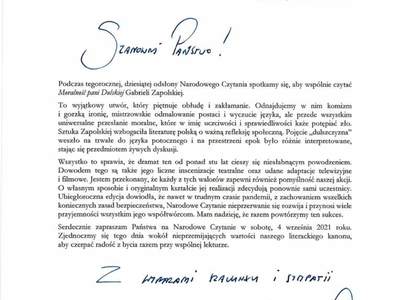 Szanowni Państwo!
Podczas tegorocznej, dziesiątej odsłony Narodowego Czytania spotkamy się, aby wspólnie czytać
Moralność pani Dulskiej Gabrieli Zapolskiej.
To wyjątkowy utwór, który piętnuje obłudę i zakłamanie. Odnajdujemy w nim komizm
i gorzką ironię, mistrzowskie odmalowanie postaci i wyczucie języka, ale przede wszystkim
uniwersalne przesłanie moralne, które w imię uczciwości i sprawiedliwości każe potępiać zło.
Sztuka Zapolskiej wzbogaciła literaturę polską o ważną refleksję społeczną. Pojęcie „dulszczyzna”
weszło na trwałe do języka potocznego i na przestrzeni epok było różnie interpretowane,
stając się przedmiotem żywych dyskusji.
Wszystko to sprawia, że dramat ten od ponad stu lat cieszy się niesłabnącym powodzeniem.
Dowodem tego są także jego liczne inscenizacje teatralne oraz udane adaptacje telewizyjne
i filmowe. Jestem przekonany, że każdy z tych walorów zapewni również pomyślność naszej akcji.
O własnym sposobie i oryginalnym kształcie jej realizacji zdecydują ponownie sami uczestnicy.
Ubiegłoroczna edycja dowiodła, że nawet w trudnym czasie pandemii, z zachowaniem wszelkich
koniecznych zasad bezpieczeństwa, Narodowe Czytanie nieprzerwanie się rozwija i przynosi wiele
przyjemności wszystkim jego współtwórcom. Mam nadzieję, że razem powtórzymy ten sukces.
Serdecznie zapraszam Państwa na Narodowe Czytanie w sobotę, 4 września 2021 roku.
Zjednoczmy się tego dnia wokół nieprzemijających wartości naszego literackiego kanonu,
aby czerpać radość z bycia razem przy wspólnej lekturze.
Z wyrazami szacunku i sympatii